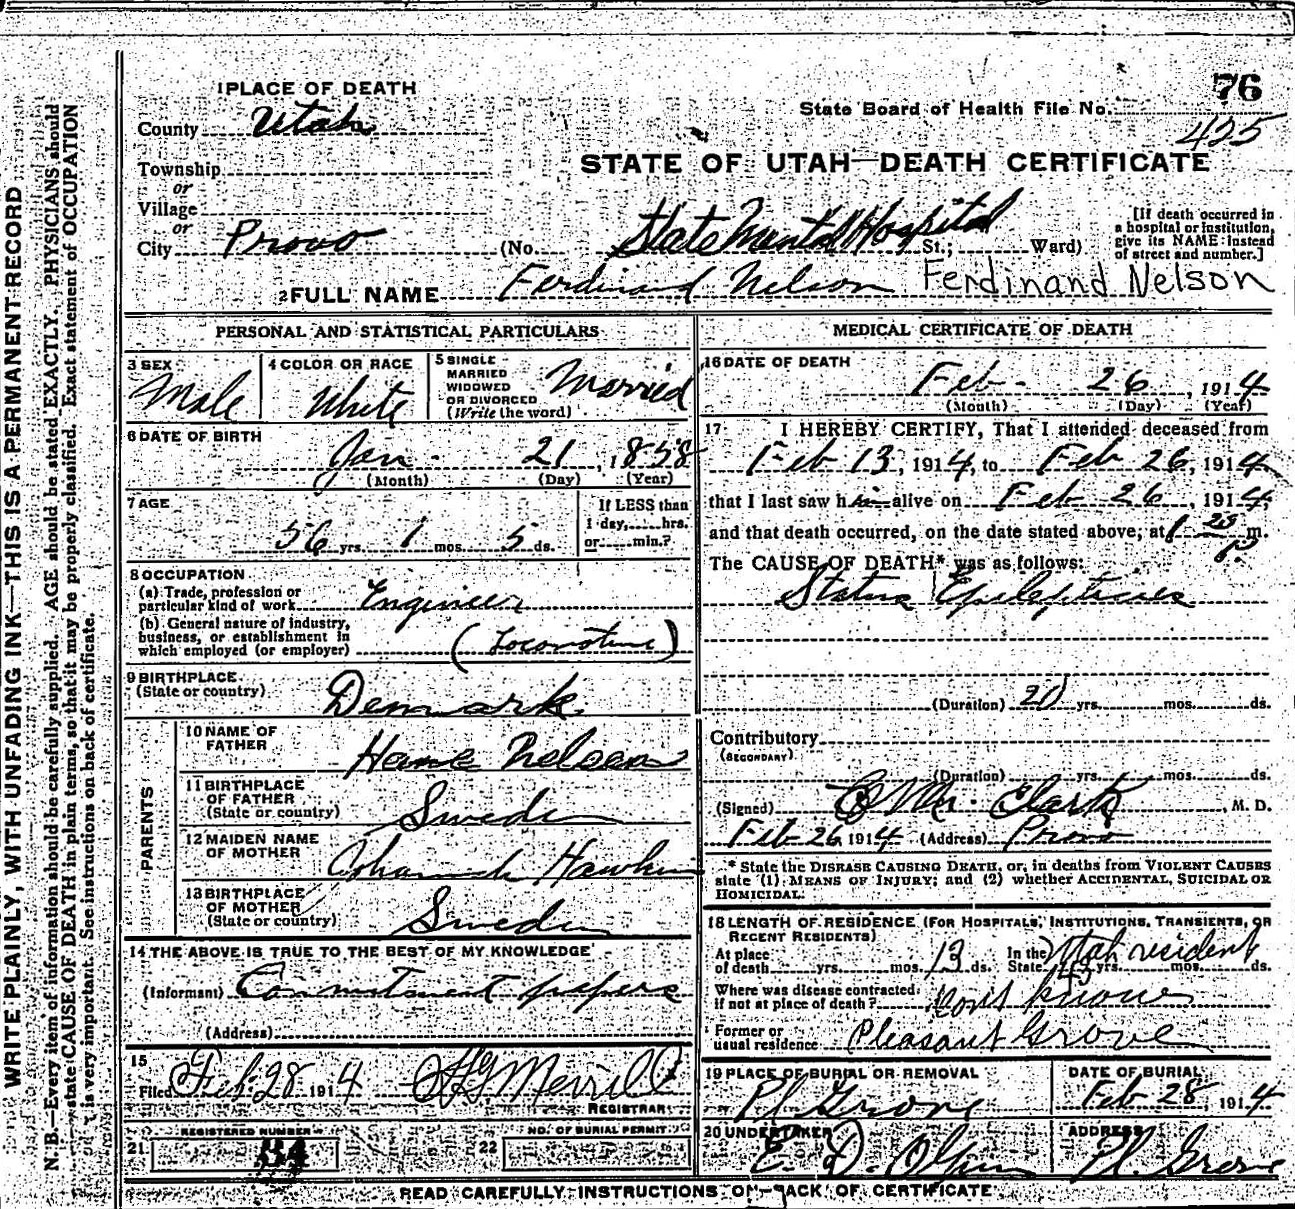 76
State Board of Health File No.
425
STATE OF UTAH—DEATH CERTIFICATE
1 PLACE OF DEATH
County Utah
Township
or
Village
or
City Provo (No. State Mental Hospital St.; Ward)
[If death occurred in
a hospital or institution,
give its NAME instead
of street and number.]
2 FULL NAME Ferdinand Nelson Ferdinand Nelson
PERSONAL AND STATISTICAL PARTICULARS
3 SEX
Male
4 COLOR OR RACE
White
5 SINGLE
MARRIED
WIDOWED
OR DIVORCED
(Write the word)
Married
6 DATE OF BIRTH
Jan. 21, 1858
(Month) (Day) (Year)
7 AGE
56 yrs. 1 mos. 5 ds.
If LESS than
1 day, hrs.
or min.?
8 OCCUPATION
(a) Trade, profession or
particular kind of work Engineer
(b) General nature of industry,
business, or establishment in
which employed (or employer) (Locomotive)
9 BIRTHPLACE
(State or country)
Demark.
PARENTS
10 NAME OF
FATHER
Hans Nelson
11 BIRTHPLACE
OF FATHER
(State or country)
Sweden
12 MAIDEN NAME
OF MOTHER
13 BIRTHPLACE
OF MOTHER
(State or country)
Sweden
14 THE ABOVE IS TRUE TO THE BEST OF MY KNOWLEDGE
(Informant) Commitment papers
(Address)
15
Filed Feb. 28 1914 Merrill
REGISTRAR
REGISTERED NUMBER
21 84
NO. OF BURIAL PERMIT
22
MEDICAL CERTIFICATE OF DEATH
16 DATE OF DEATH
Feb. 26, 1914
(Month) (Day) (Year)
17 I HEREBY CERTIFY, That I attended deceased from
Feb 13, 1914, to Feb 26, 1914
that I last saw him alive on Feb 26, 1914,
and that death occurred, on the date stated above, at 1 25 P. m.
The CAUSE OF DEATH* was as follows:
Status Epilepticus
(Duration) 20 yrs. mos. ds.
Contributory
(SECONDARY)
(Duration) yrs. mos. ds.
(Signed) Clark, M. D.
Feb 26 1914 (Address) Provo
* State the DISEASE CAUSING DEATH, or, in deaths from VIOLENT CAUSES
state (1) MEANS OF INJURY; and (2) whether ACCIDENTAL, SUICIDAL OR
HOMICIDAL.
18 LENGTH OF RESIDENCE (FOR HOSPITALS, INSTITUTIONS, TRANSIENTS, OR
RECENT RESIDENTS)
At place
of death yrs. mos. 13 ds.
In the
State 43 yrs. mos. ds.
Utah resident
Where was disease contracted
if not at place of death? Dont know
Former or
usual residence Pleasant Grove
19 PLACE OF BURIAL OR REMOVAL
Pl Grove
DATE OF BURIAL
Feb 28, 1914
20 UNDERTAKER
E. D. Olpin
ADDRESS
Pl. Grove
READ CAREFULLY INSTRUCTIONS ON BACK OF CERTIFICATE
WRITE PLAINLY, WITH UNFADING INK—THIS IS A PERMANENT RECORD
N. B.—Every item of information should be carefully supplied. AGE should be stated EXACTLY. PHYSICIANS should
state CAUSE OF DEATH in plain terms, so that it may be properly classified. Exact statement of OCCUPATION
is very important. See instructions on back of certificate.